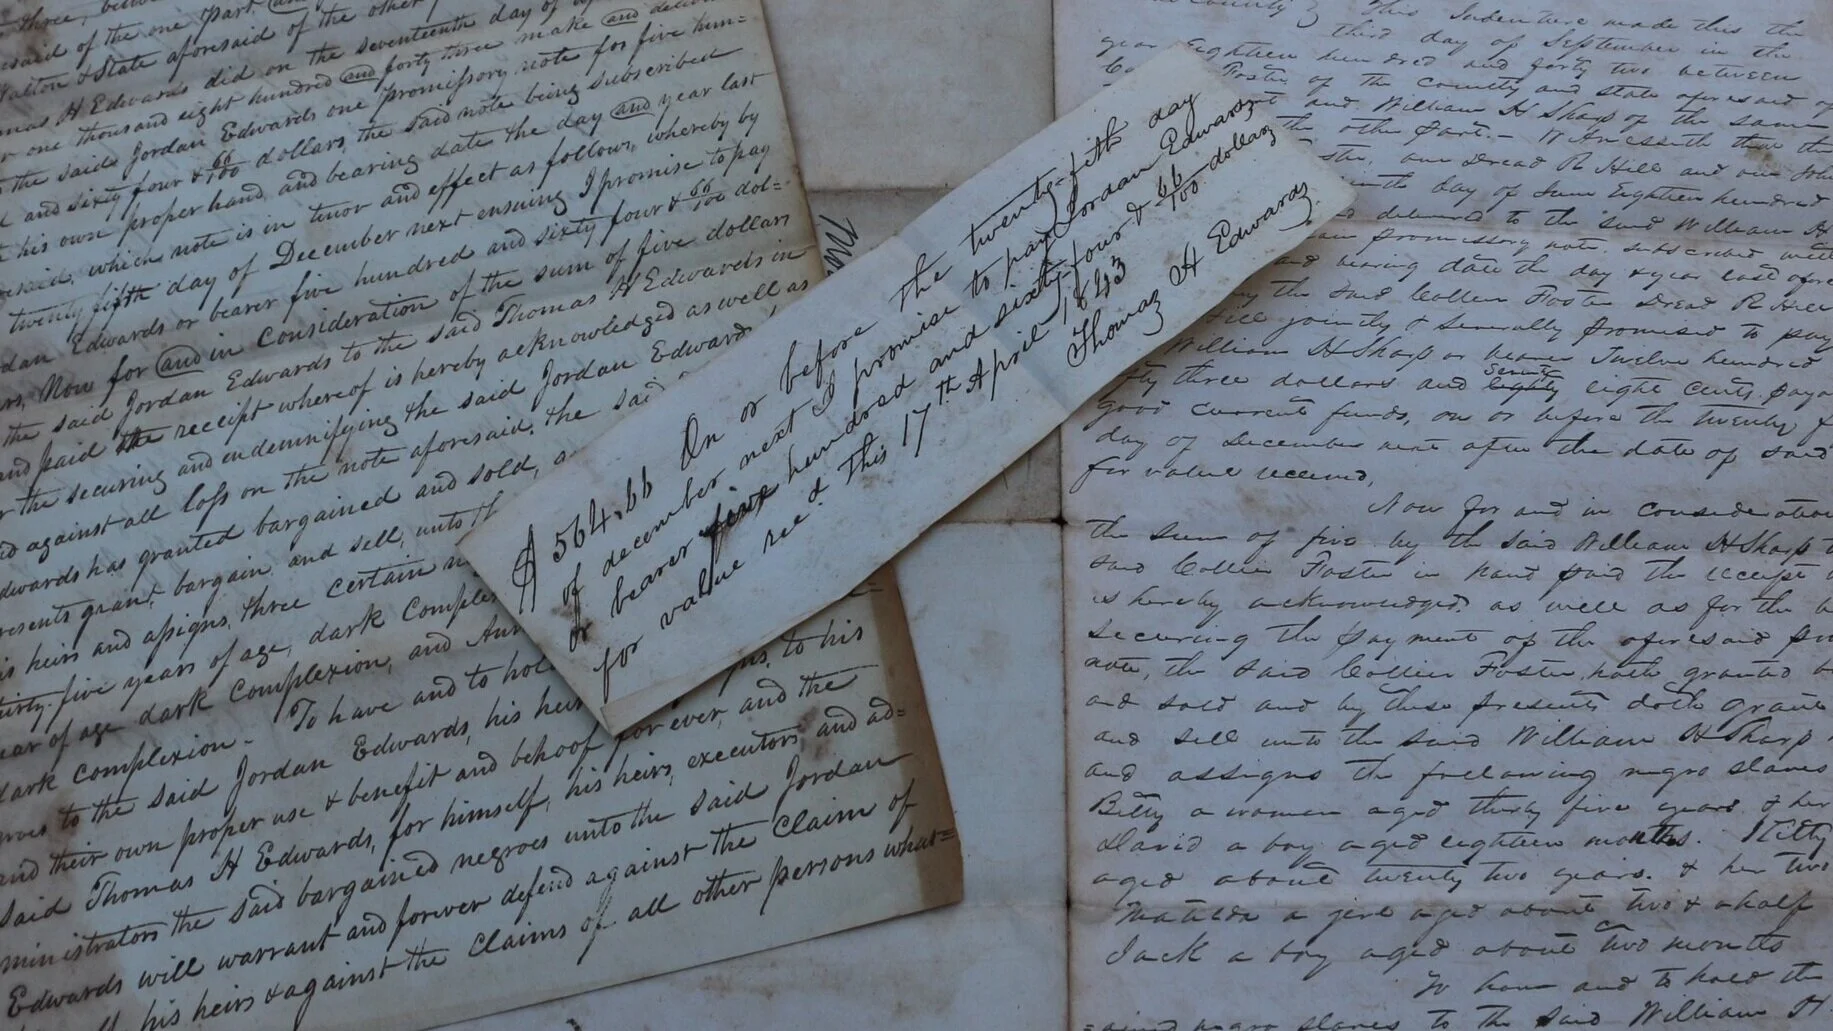 three,
said of the one part,
alton & State aforesaid of the other
mas H Edwards did on the seventeenth day of
one thousand eight hundred and forty three make and
the said Jordan Edwards one promissory note for five hun=
and sixty four & 66/100 dollars, the said note being subscribed
his own proper hand, and bearing date the day and year last
which note is in tenor and effect as follows, whereby by
twenty fifth day of December next ensuing I promise to pay
dan Edwards or bearer five hundred and sixty four & 66/100 dol=
Now for and in Consideration of the sum of five dollars
the said Jordan Edwards to the said Thomas H Edwards in
and paid the receipt whereof is hereby acknowledged as well as
the securing and indemnifying the said Jordan Edward
against all loss on the note aforesaid, the said
dwards has granted bargained and sold, a
resents grant, bargain and sell, unto th
heirs and assigns, three certain n
thirty-five years of age, dark Complex
year of age dark Complexion, and Ann
dark Complexion. To have and to hol
to the said Jordan Edwards, his heir to his
and their own proper use & benefit and behoof for ever, and the
said Thomas H Edwards, for himself, his heirs, executors and ad=
ministrators the said bargained negroes unto the said Jordan
Edwards will warrant and forever defend against the Claim of
his heirs & against the Claims of all other persons what=
$ 564.66 On or before the twenty-fifth day
of december next I promise to pay Jordan Edwards
or bearer five hundred and sixty-four & 66/100 dollars
for value rec. & This 17th April 1843
Thomas H Edwards
This Indenture made this the
third day of September in the
year Eighteen hundred and forty two between
Foster of the County and State aforesaid of
and William H Sharp of the same
the other part. - Witnesseth that the
one Dread R Hill and one
day of June Eighteen hundred
delivered to the said William H
promissory note subscribed with
and bearing date the day & year last afore
the said Collier Foster Dread R Hill
jointly & severally promised to pay
William H Sharp or bearer Twelve hundred
fty three dollars and eighty seventy eight cents. paya
good current funds, on or before the twenty f
day of December next after the date of said
for value received,
Now for and in consideration
the sum of five by the said William H Sharp
said Collier Foster in hand paid the receipt
is hereby acknowledged. as well as for the
securing the payment of the aforesaid
note, the said Collier Foster, hath granted
and sold and by these presents doth grant
and sell unto the said William H Sharp
and assigns the following negro slaves
Bitty a women aged thirty five years & her
David a boy aged eighteen months. Kitty
aged about twenty two years. & her two
Matilda a girl aged about two & a half
Jack a boy aged about two months
To have and to hold the
negro slaves to the said William H